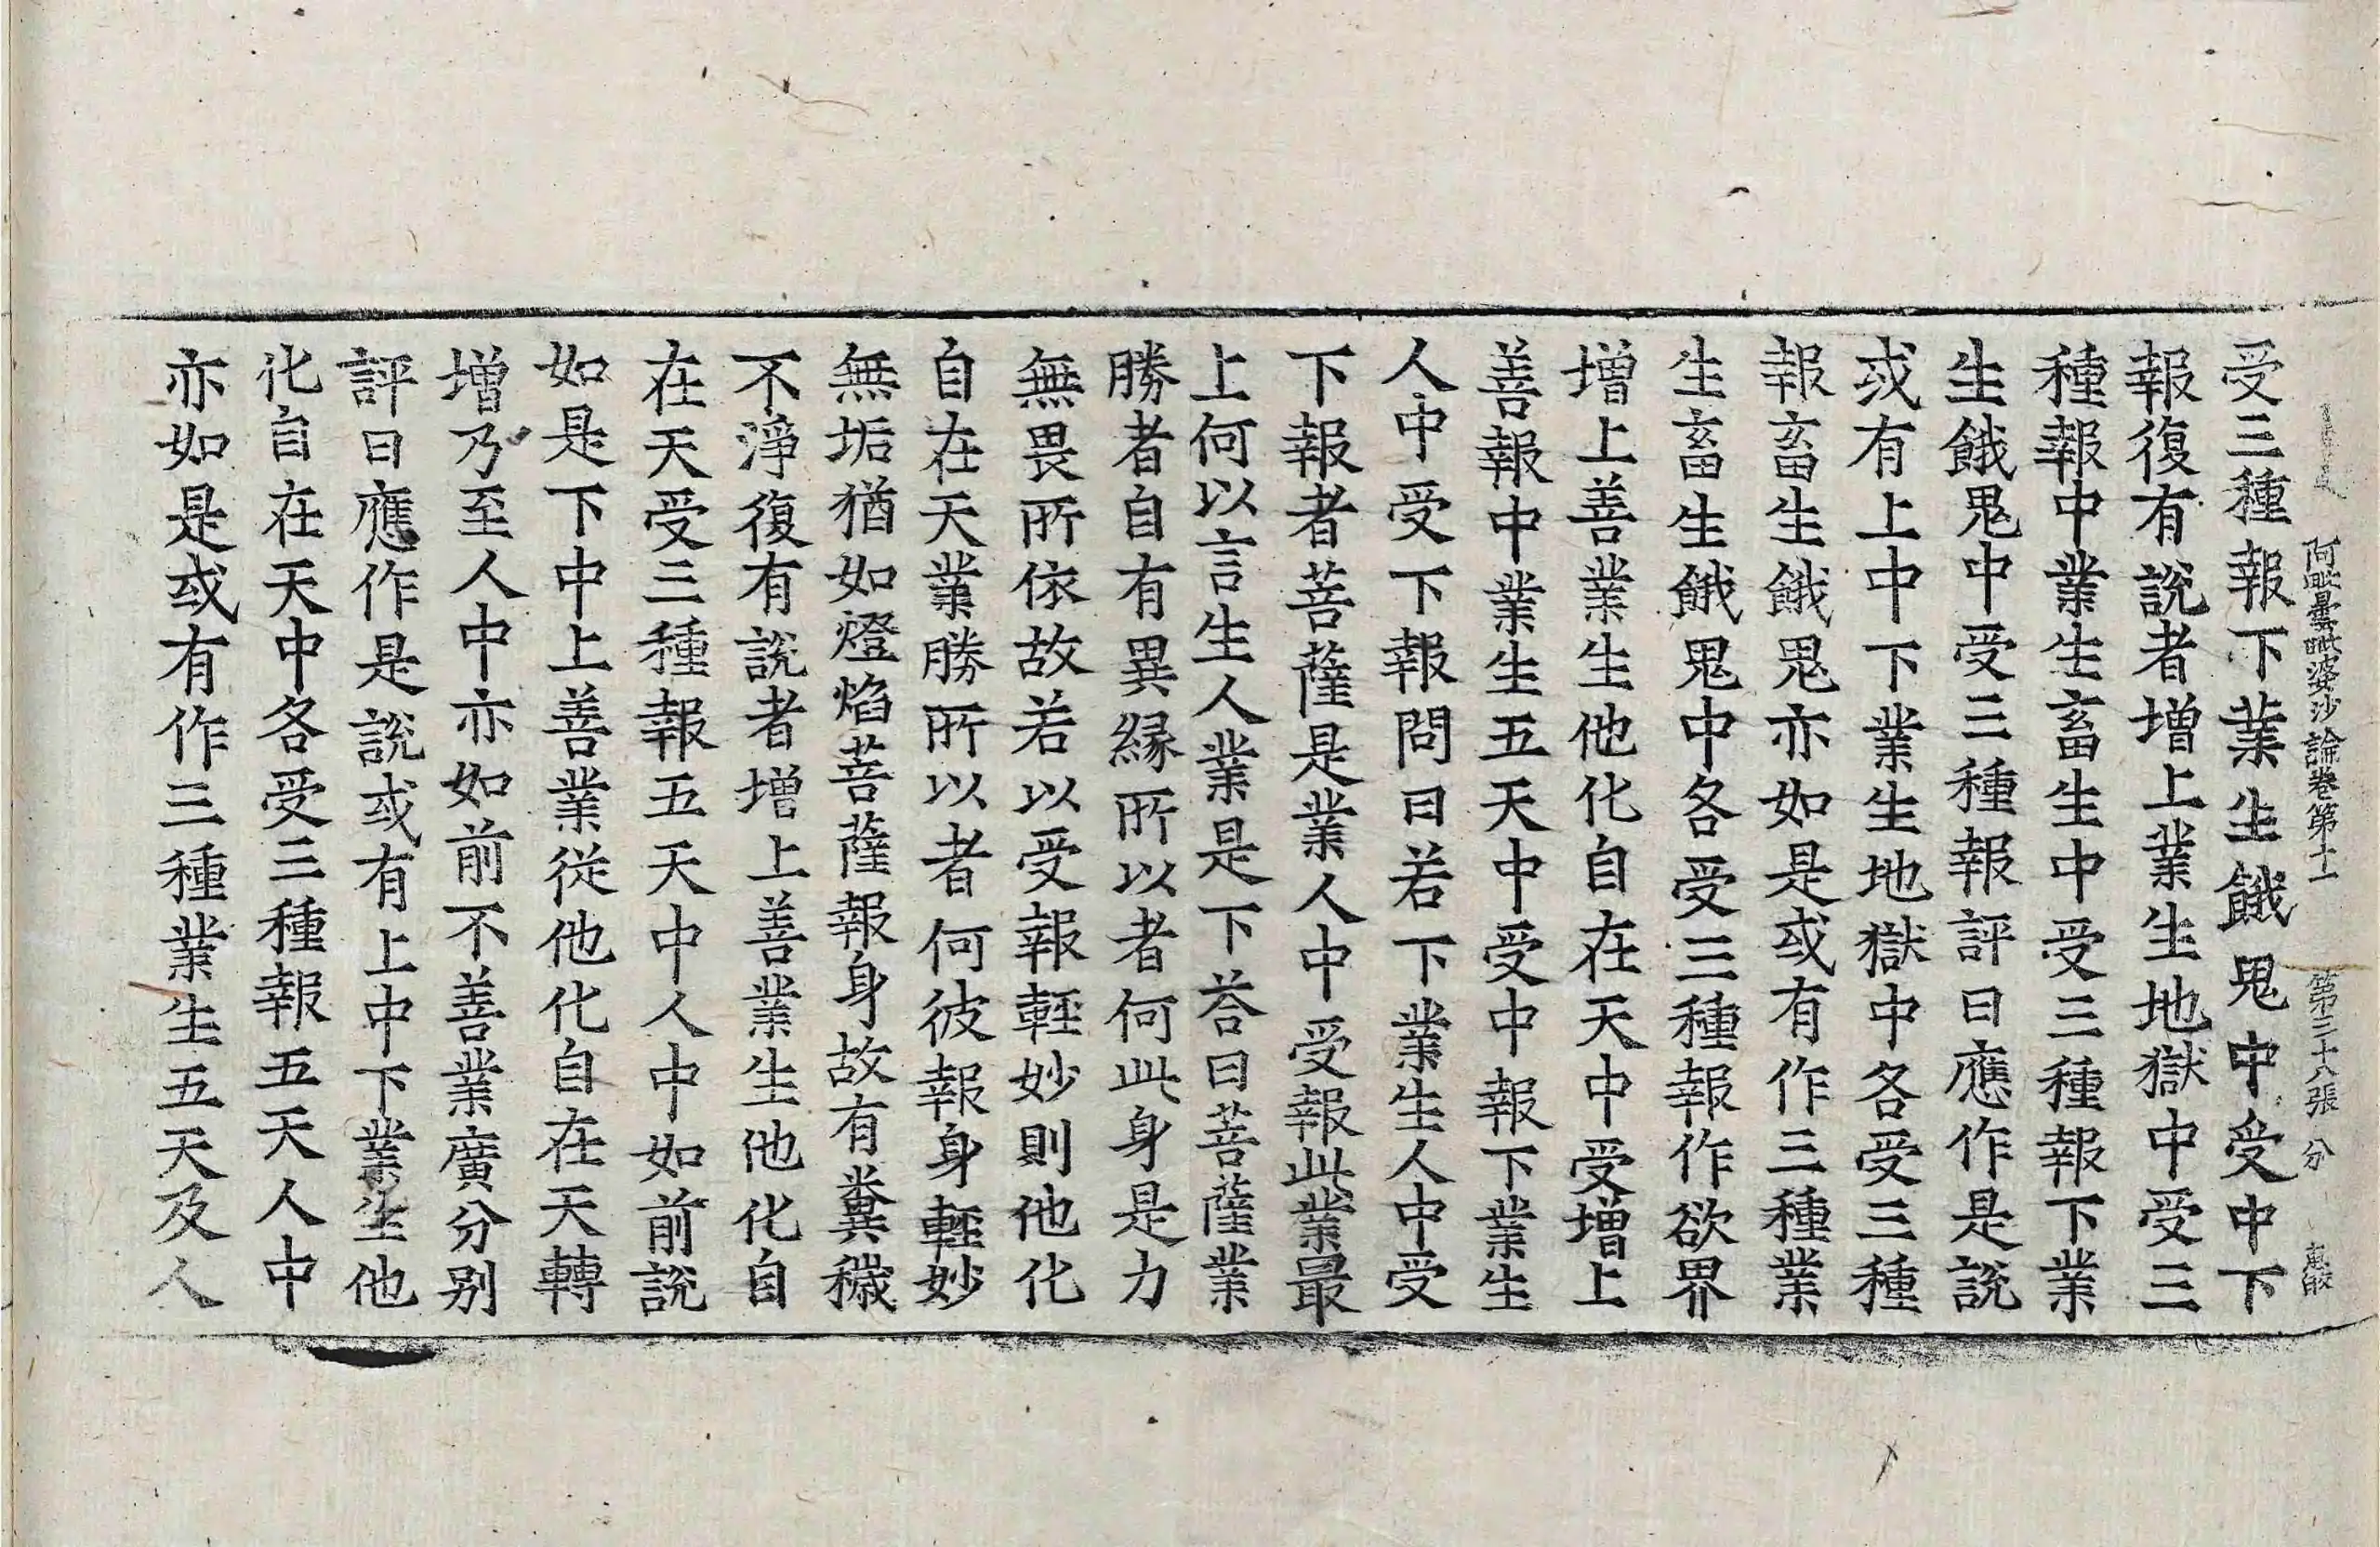 阿毗曇毗婆沙論卷第十一 第三十八張 分
受三種報下業生餓鬼中受中下
報復有說者增上業生地獄中受三
種報中業生畜生中受三種報下業
生餓鬼中受三種報評曰應作是說
或有上中下業生地獄中各受三種
報畜生餓鬼亦如是或有作三種業
生畜生餓鬼中各受三種報作欲界
增上善業生他化自在天中受增上
善報中業生五天中受中報下業生
人中受下報問曰若下業生人中受
下報者菩薩是業人中受報此業最
上何以言生人業是下荅曰菩薩業
勝者自有異緣所以者何此身是力
無畏所依故若以受報輕妙則他化
自在天業勝所以者何彼報身輕妙
無垢猶如燈焰菩薩報身故有糞穢
不淨復有說者增上善業生他化自
在天受三種報五天中人中如前說
如是下中上善業從他化自在天轉
增乃至人中亦如前不善業廣分别
評曰應作是說或有上中下業生他
化自在天中各受三種報五天人中
亦如是或有作三種業生五天及人